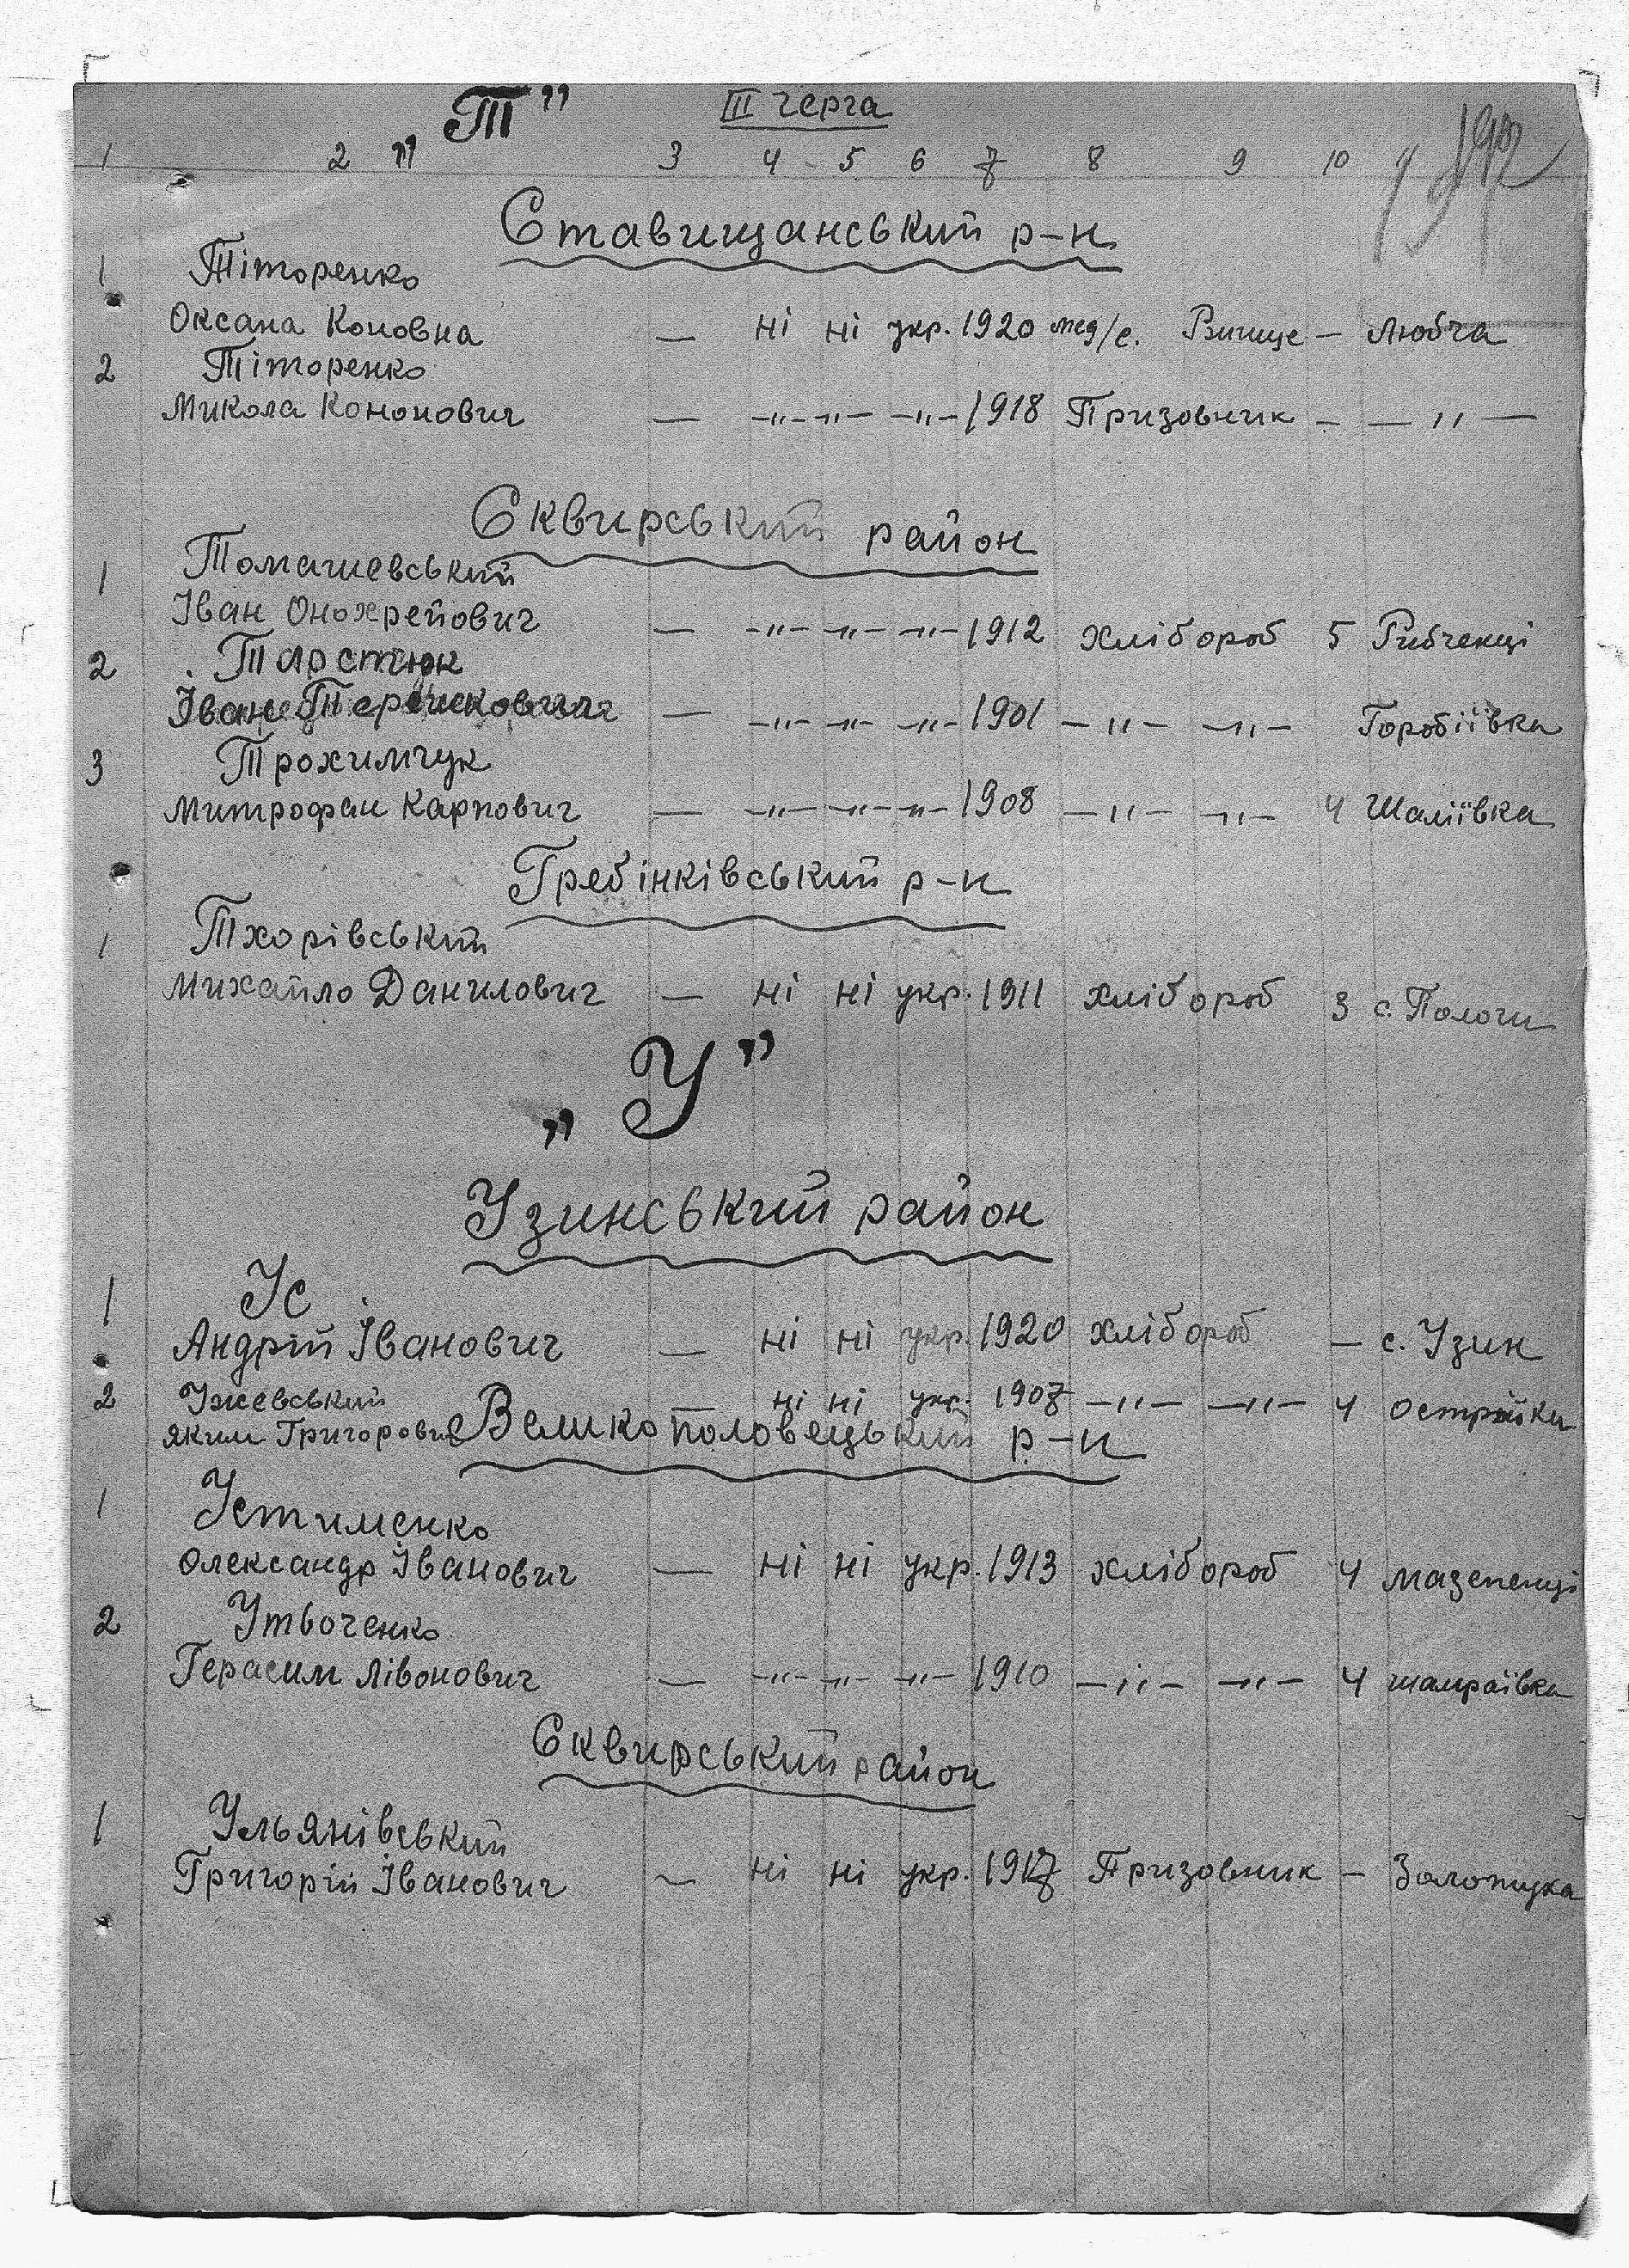 „Т” III черга
1 2 3 4 5 6 7 8 9 10 11
Ставищанський р-н
1 Тіторенко
Оксана Коновна — ні ні укр. 1920 мед/с. Вище — Любча
2 Тіторенко
Микола Кононович — -„- -„- -„- 1918 Призовник - — „ —
Сквирський район
1 Томашевський
Іван Онохрейович — -„- -„- -„- 1912 хлібороб 5 Рибченці
2 Тарстюк
Іван — -„- -„- -„- 1901 -„- -„- Горобіївка
3 Трохимчук
Митрофан Карпович — -„- -„- -„- 1908 -„- -„- 4 Шаліївка
Гребінківський р-н
1 Тхорівський
Михайло Данилович — ні ні укр. 1911 хлібороб 3 с. Пологи
„У”
Узинський район
1 Ус
Андрій Іванович — ні ні укр. 1920 хлібороб — с. Узин
2 Ужевський ні ні укр. 1907 -„- -„- 4 Острійки
Яким Григорович Великополовецький р-н
1 Устименко
Олександр Іванович — ні ні укр. 1913 хлібороб 4 Мазепенці
2 Утвоченко
Герасим Лівонович — -„- -„- -„- 1910 -„- -„- 4 шамраївка
Сквирський район
1 Ульянівський
Григорій Іванович — ні ні укр. 1917 Призовник -